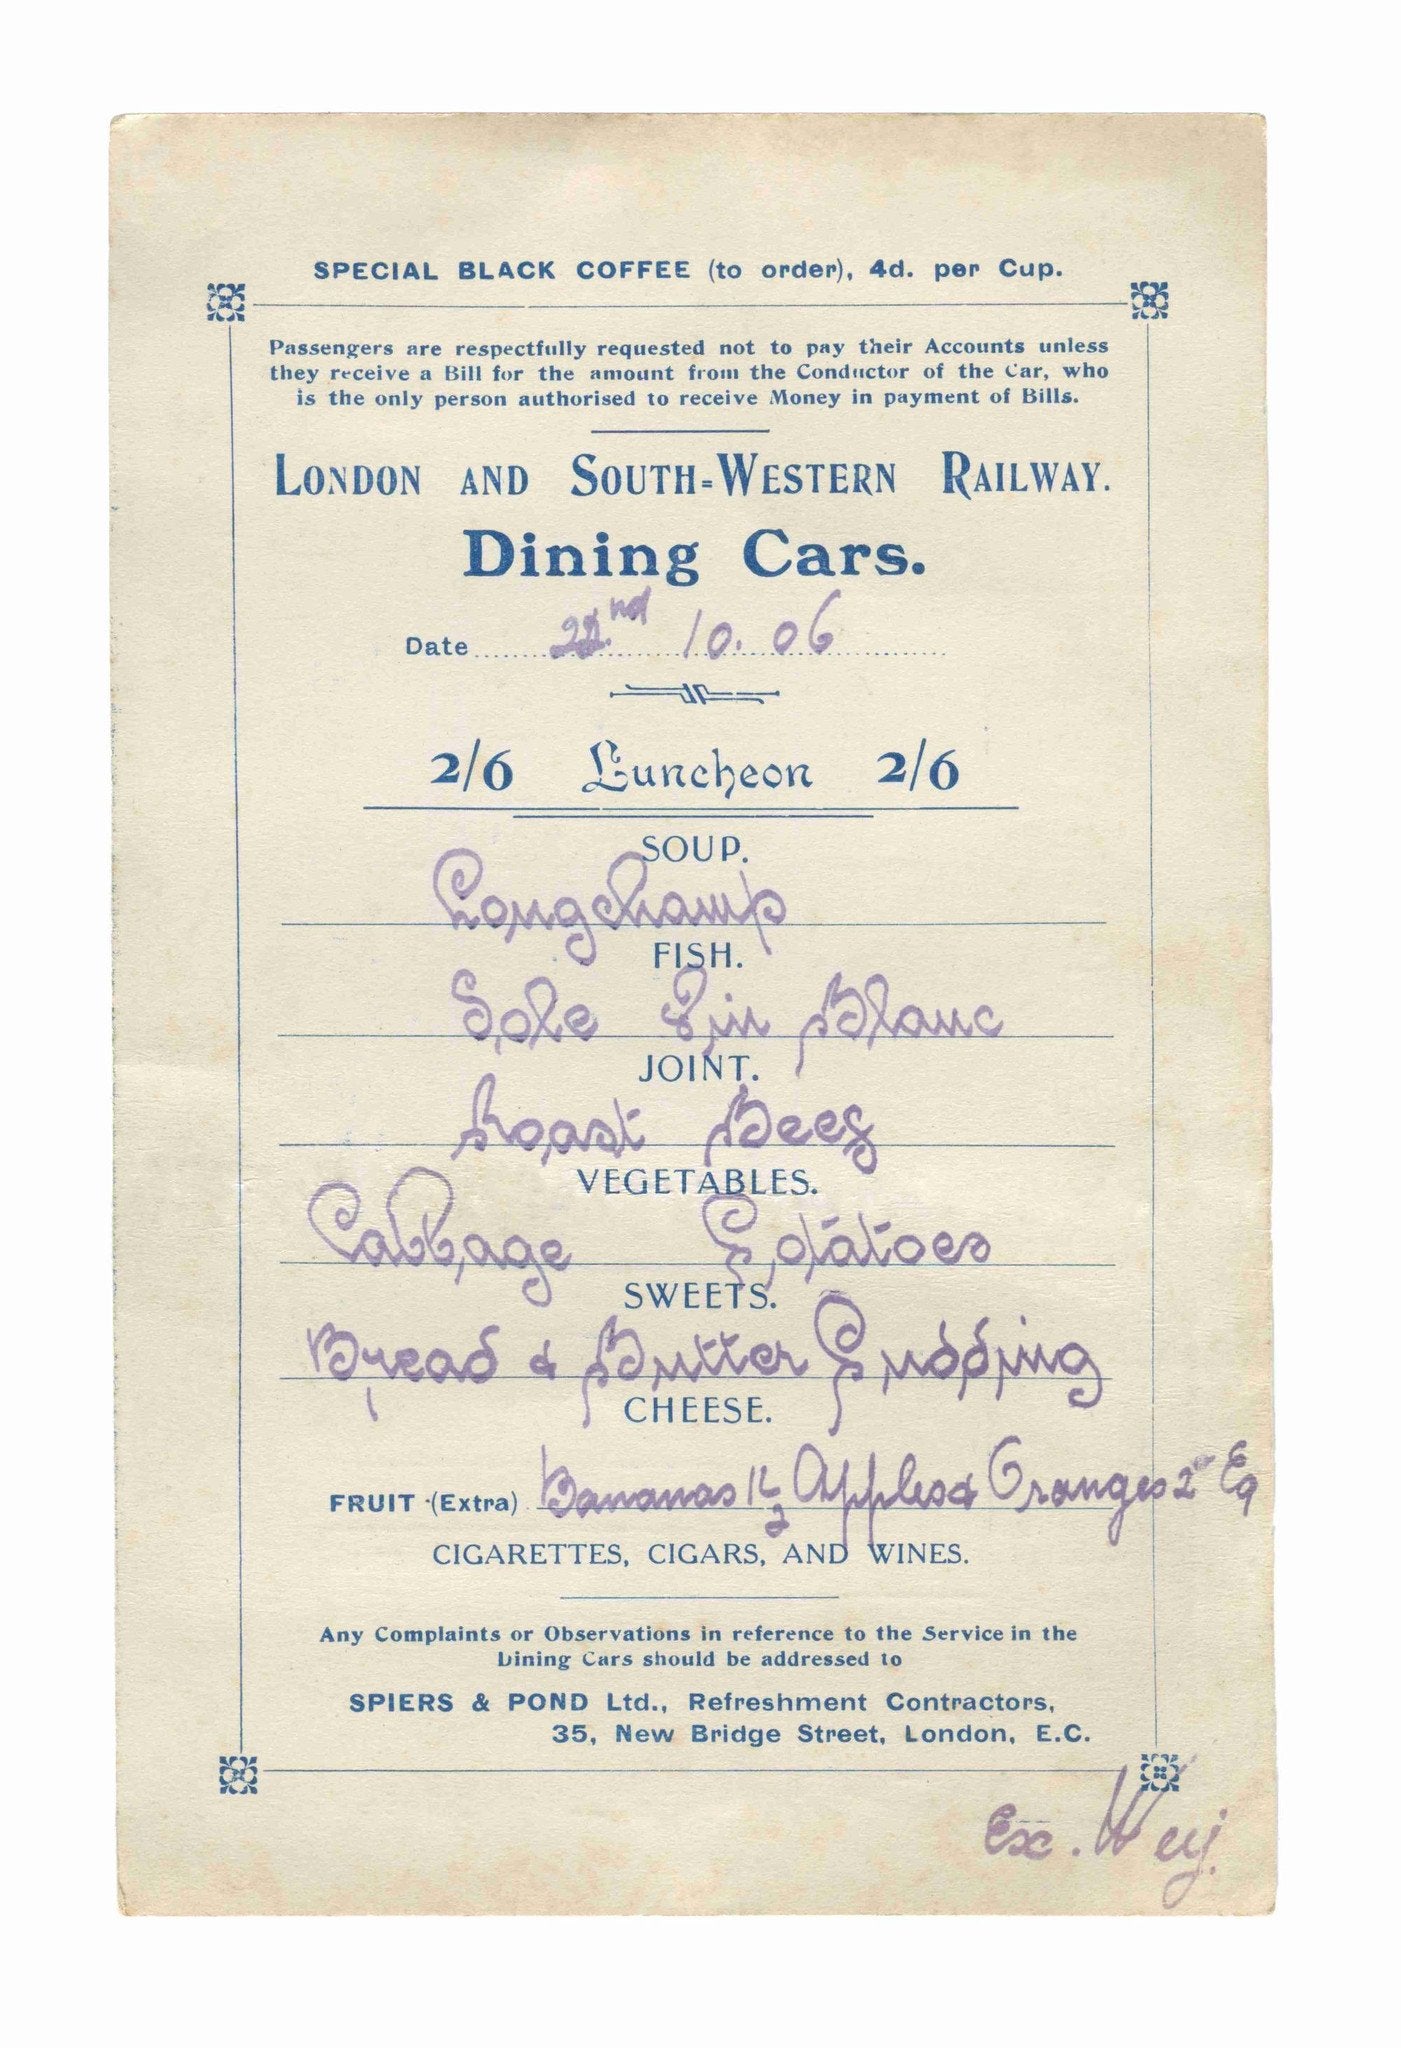 SPECIAL BLACK COFFEE (to order), 4d. per Cup.
Passengers are respectfully requested not to pay their Accounts unless
they receive a Bill for the amount from the Conductor of the Car, who
is the only person authorised to receive Money in payment of Bills.
LONDON AND SOUTH=WESTERN RAILWAY.
Dining Cars.
Date 22nd 10. 06
2/6 Luncheon 2/6
SOUP.
Longchamp
FISH.
Sole Vin Blanc
JOINT.
Roast Beef
VEGETABLES.
Cabbage Potatoes
SWEETS.
Bread & Butter Pudding
CHEESE.
FRUIT (Extra) Bananas 1½ Apples & Oranges 2 Ea
CIGARETTES, CIGARS, AND WINES.
Any Complaints or Observations in reference to the Service in the
Dining Cars should be addressed to
SPIERS & POND Ltd., Refreshment Contractors,
35, New Bridge Street, London, E.C.
Ex.